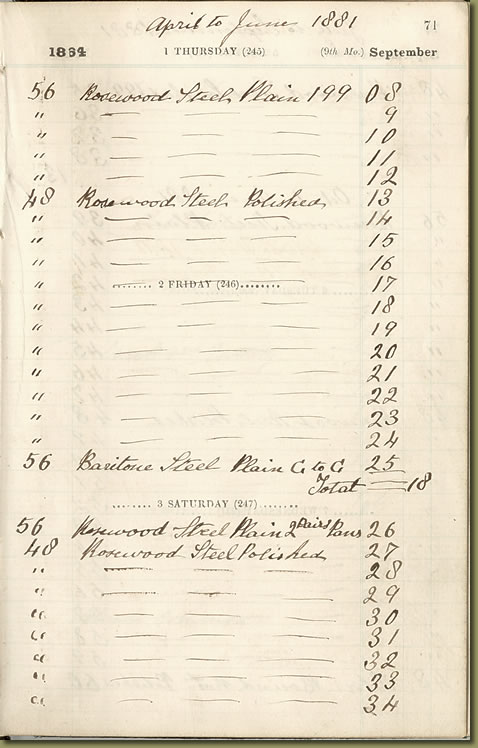 April to June 1881
71
1864 1 THURSDAY (245) (9th Mo.) September
56 Rosewood Steel Plain 199 08
" — — — 9
" — — — 10
" — — — 11
" — — — 12
48 Rosewood Steel Polished 13
" — — — 14
" — — — 15
" — — — 16
" ........ 2 FRIDAY (246)........ 17
" — — — 18
" — — — 19
" — — — 20
" — — — 21
" — — — 22
" — — — 23
" — — — 24
56 Baritone Steel Plain C to C 25
Total 18
........ 3 SATURDAY (247) .......
56 Rosewood Steel Plain 2 Pairs Pans 26
48 Rosewood Steel Polished 27
" — — — 28
" — — — 29
" — — — 30
" — — — 31
" — — — 32
" — — — 33
" — — — 34